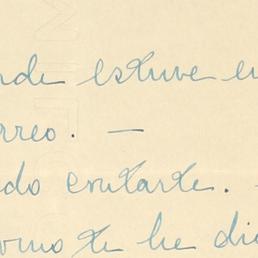 nde estuve en
rreo. —
edo contarte. -
omo te he dic